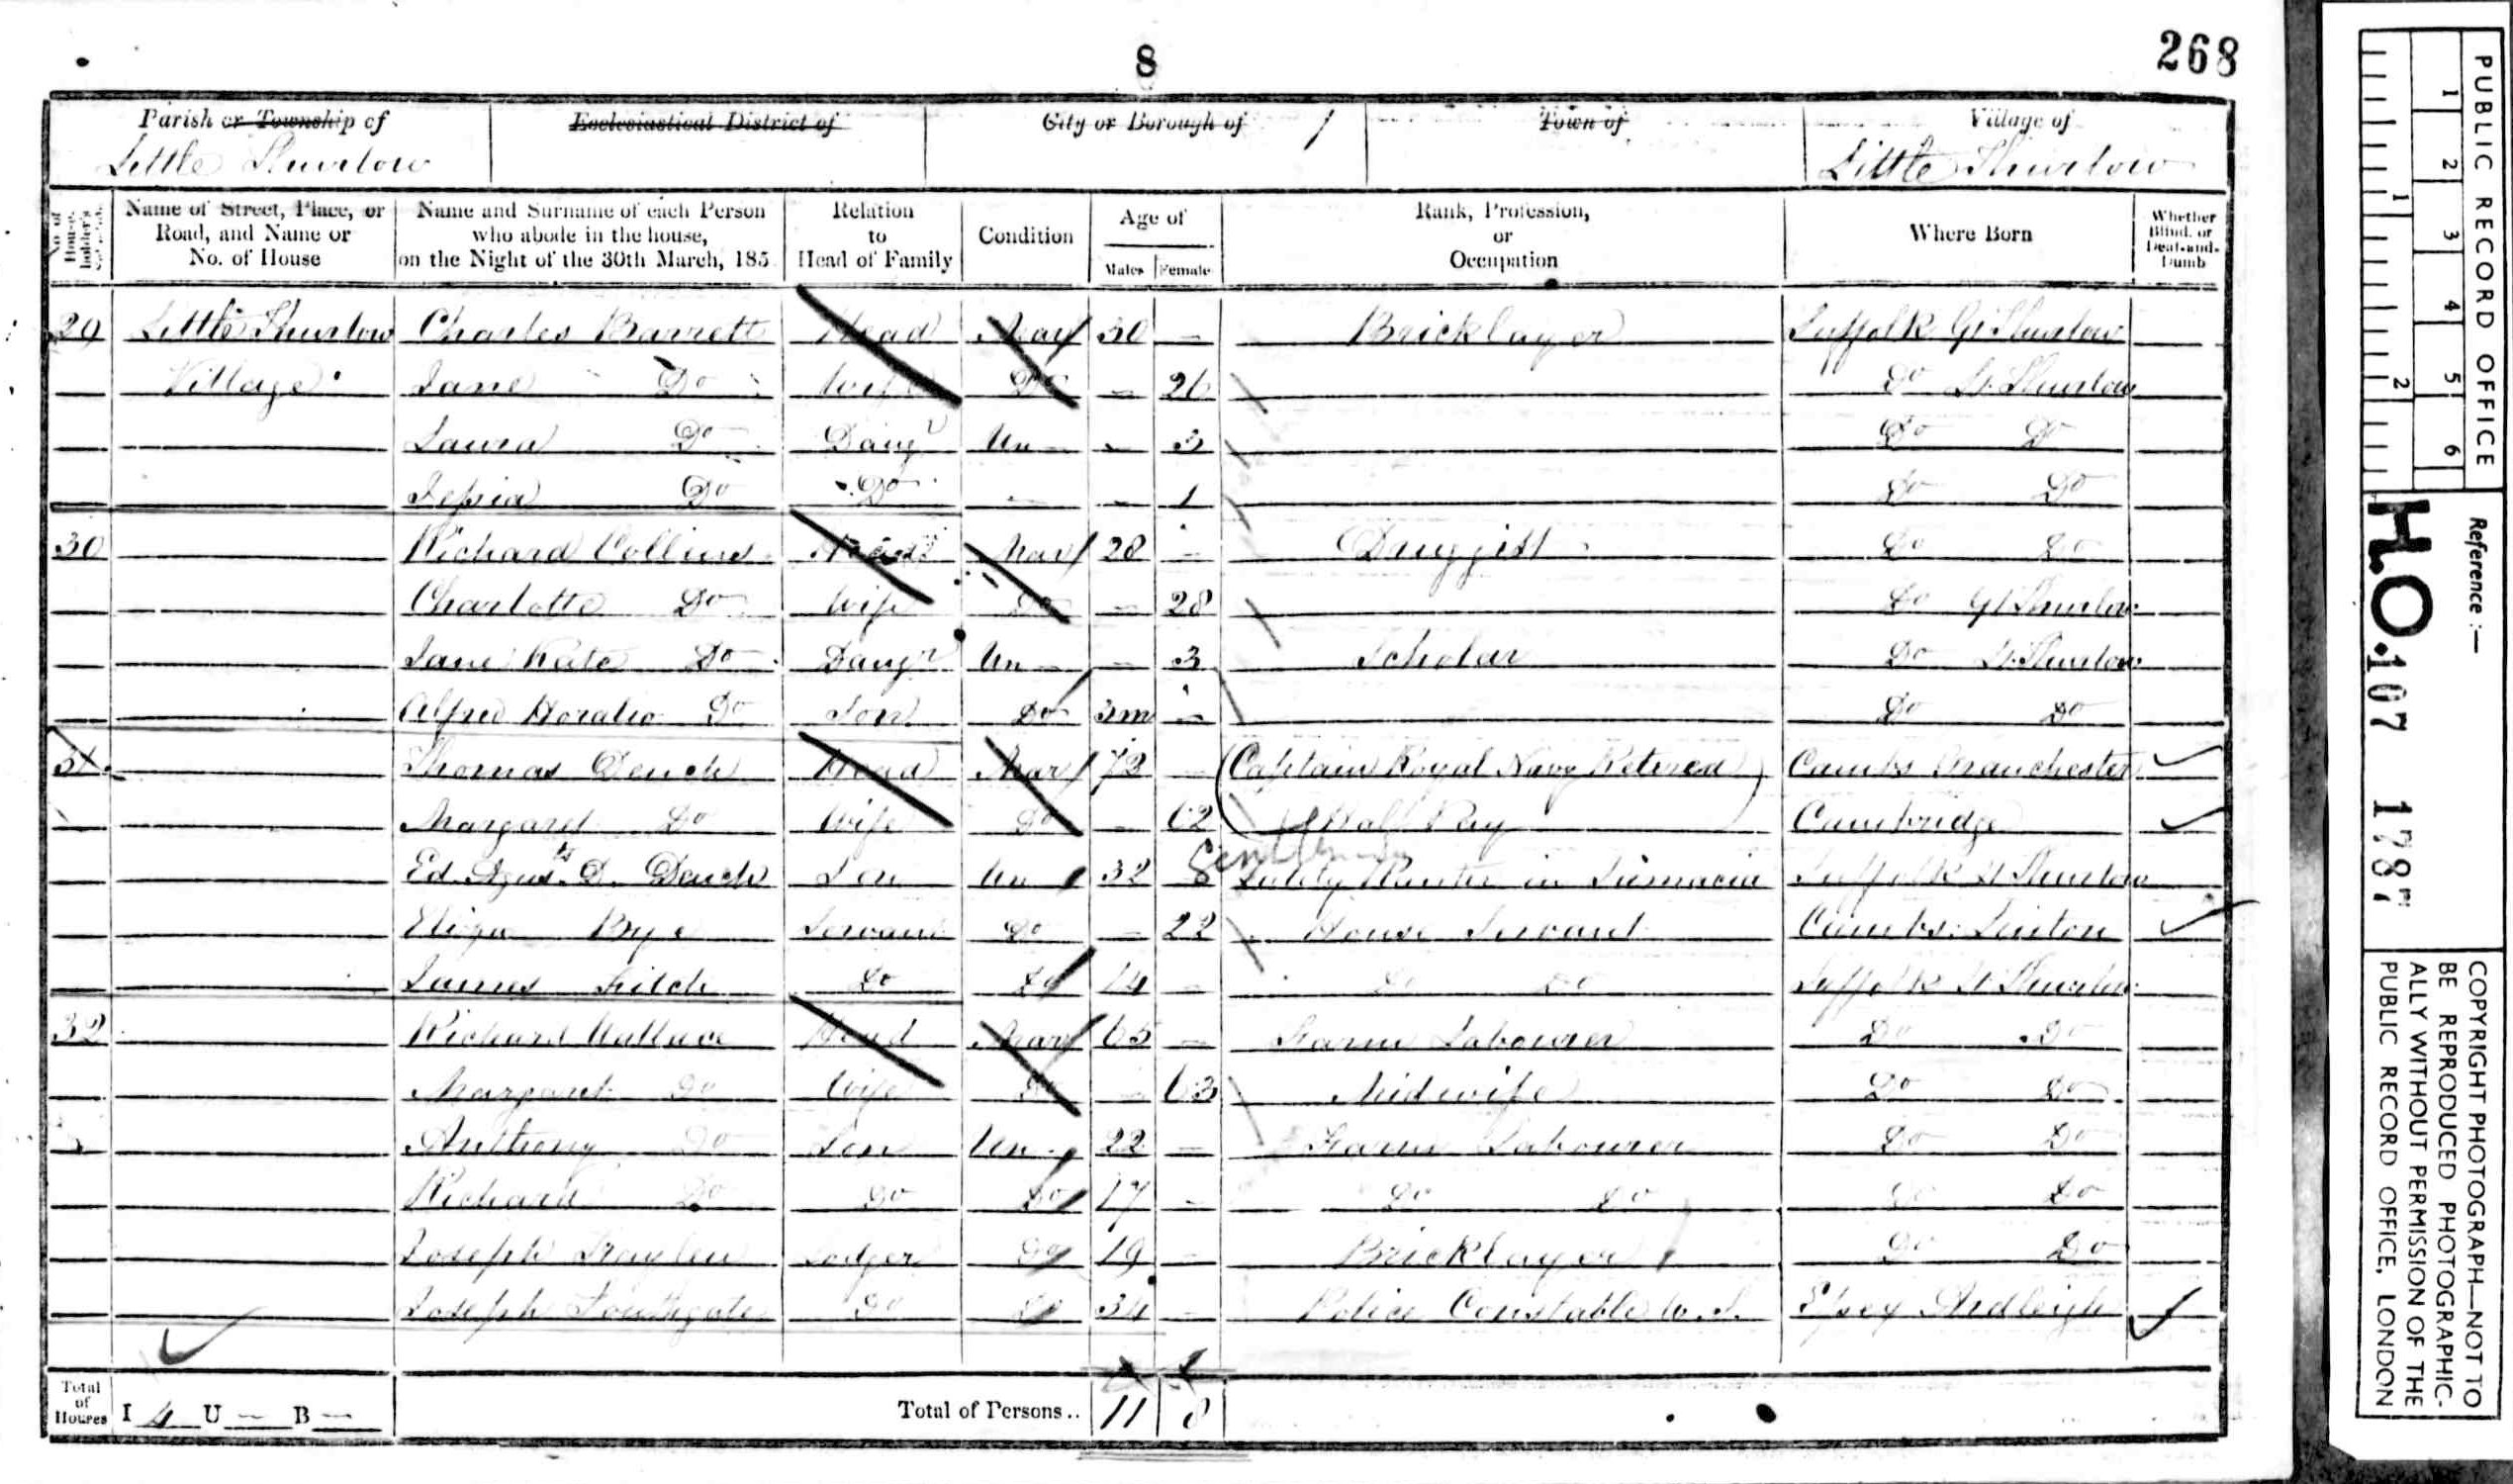 8
268
Parish or Township of
Little Thurlow
Ecclesiastical District of
City or Borough of
Town of
Village of
Little Thurlow
No. of House-holder's
Name of Street, Place, or Road, and Name or No. of House
Name and Surname of each Person who abode in the house, on the Night of the 30th March, 185
Relation to Head of Family
Condition
Age of
Males Female
Rank, Profession, or Occupation
Where Born
Whether Blind, or Deaf-and-Dumb
29 Little Thurlow Charles Barrett Head Mar 30 – Bricklayer Suffolk Gt Thurlow
Village Jane Do Wife Do – 26 Do Lt. Thurlow
Laura Do Daugr Un – – 3 Do Do
Jessia Do Do – – 1 Do Do
30 Richard Collins Head Mar 28 – Druggist Do Do
Charlotte Do Wife Do – 28 Do Gt Thurlow
Jane Kate Do Daugr Un – – 3 Scholar Do Lt. Thurlow
Alfred Horatio Do Son Do 3m – Do Do
31 Thomas Dench Head Mar 73 – Captain Royal Navy Retired Cambs Granchester
Margaret Do Wife Do – 62 Half Pay Cambridge
Ed. D. Dench Son Un 32 in Suffolk Lt Thurlow
Eliza Bye Servant Do – 22 House Servant Cambs. Linton
James Fitch Do Do 14 – Do Do Suffolk Lt Thurlow
32 Richard Wallace Head Mar 65 – Farm Labourer Do Do
Margaret Do Wife Do – 63 Midwife Do Do
Anthony Do Son Un 22 – Farm Labourer Do Do
Richard Do Do Do 17 – Do Do Do Do
Joseph Lodger Do 19 – Bricklayer Do Do
Joseph Southgate Do Do 34 – Police Constable Essex Ardleigh
Total of Houses I 4 U – B –
Total of Persons.. 11 8
PUBLIC RECORD OFFICE
1 2 3 4 5 6
1 2
Reference :—
H.O. 107 1787
COPYRIGHT PHOTOGRAPH—NOT TO
BE REPRODUCED PHOTOGRAPHIC-
ALLY WITHOUT PERMISSION OF THE
PUBLIC RECORD OFFICE, LONDON